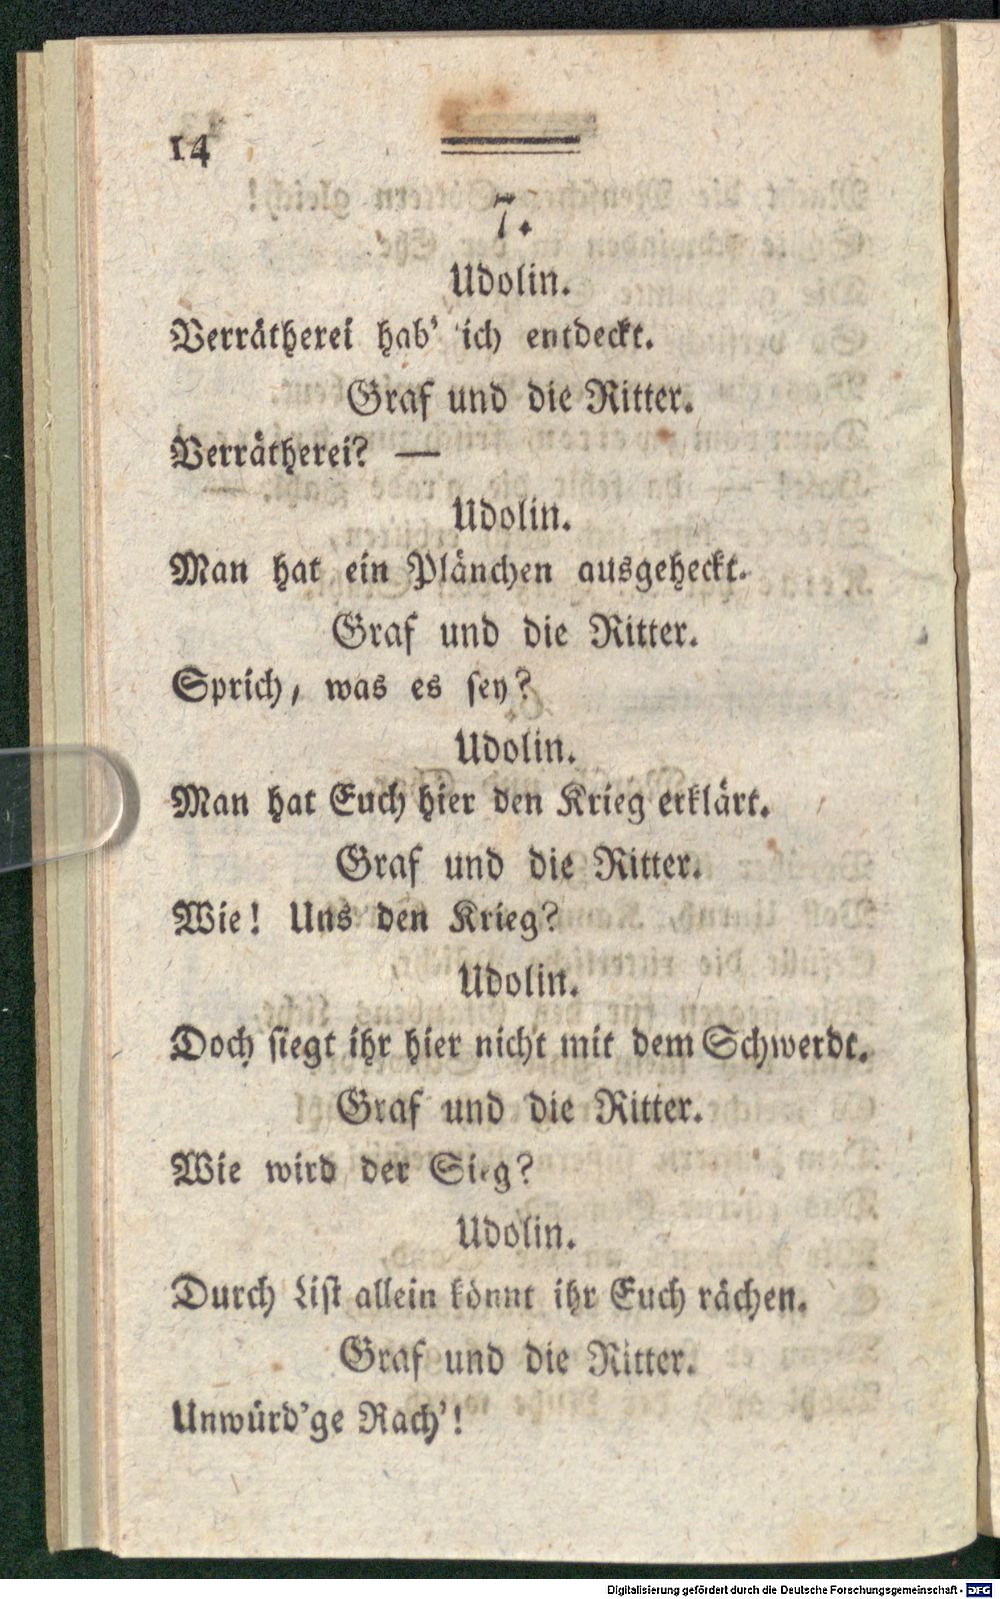 14
7.
Udolin.
Verrätherei hab' ich entdeckt.
Graf und die Ritter.
Verrätherei? —
Udolin.
Man hat ein Plänchen ausgeheckt.
Graf und die Ritter.
Sprich, was es sey?
Udolin.
Man hat Euch hier den Krieg erklärt.
Graf und die Ritter.
Wie! Uns den Krieg?
Udolin.
Doch siegt ihr hier nicht mit dem Schwerdt.
Graf und die Ritter.
Wie wird der Sieg?
Udolin.
Durch List allein könnt ihr Euch rächen.
Graf und die Ritter.
Unwürd'ge Rach'!
Digitalisierung gefördert durch die Deutsche Forschungsgemeinschaft - DFG